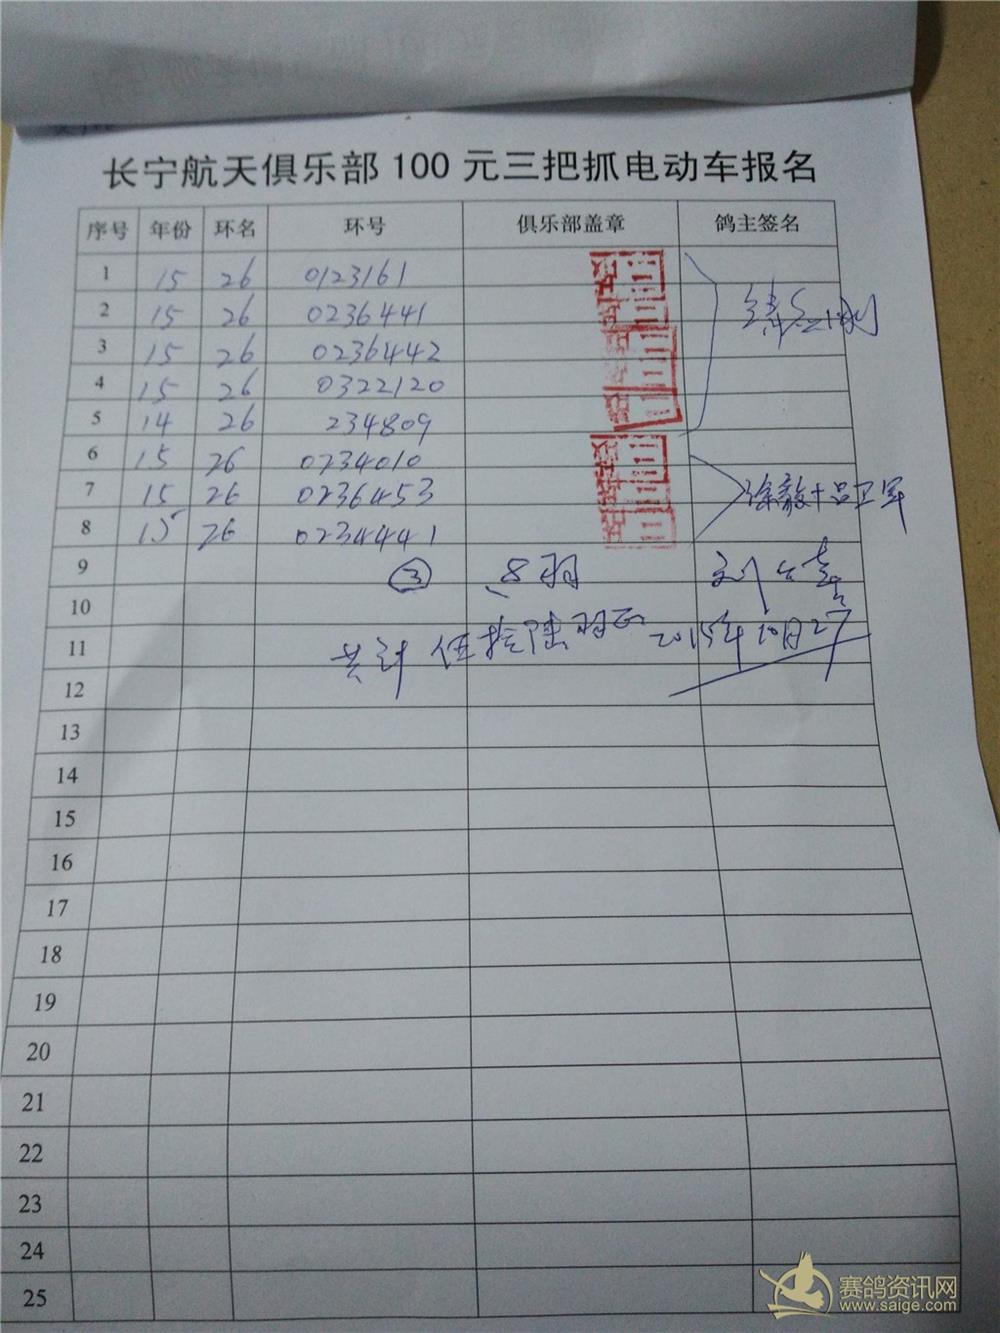 长宁航天俱乐部 100 元三把抓电动车报名
序号 年份 环名 环号 俱乐部盖章 鸽主签名
1 15 26 0123161
2 15 26 0236441
3 15 26 0236442
4 15 26 0322120
5 14 26 234809
6 15 26 0234010
7 15 26 0236453
8 15 26 0234441
9 ③ 8羽
10
11 共计 伍拾陆羽正 2015年10月27
12
13
14
15
16
17
18
19
20
21
22
23
24
25
赛鸽资讯网
www.saige.com